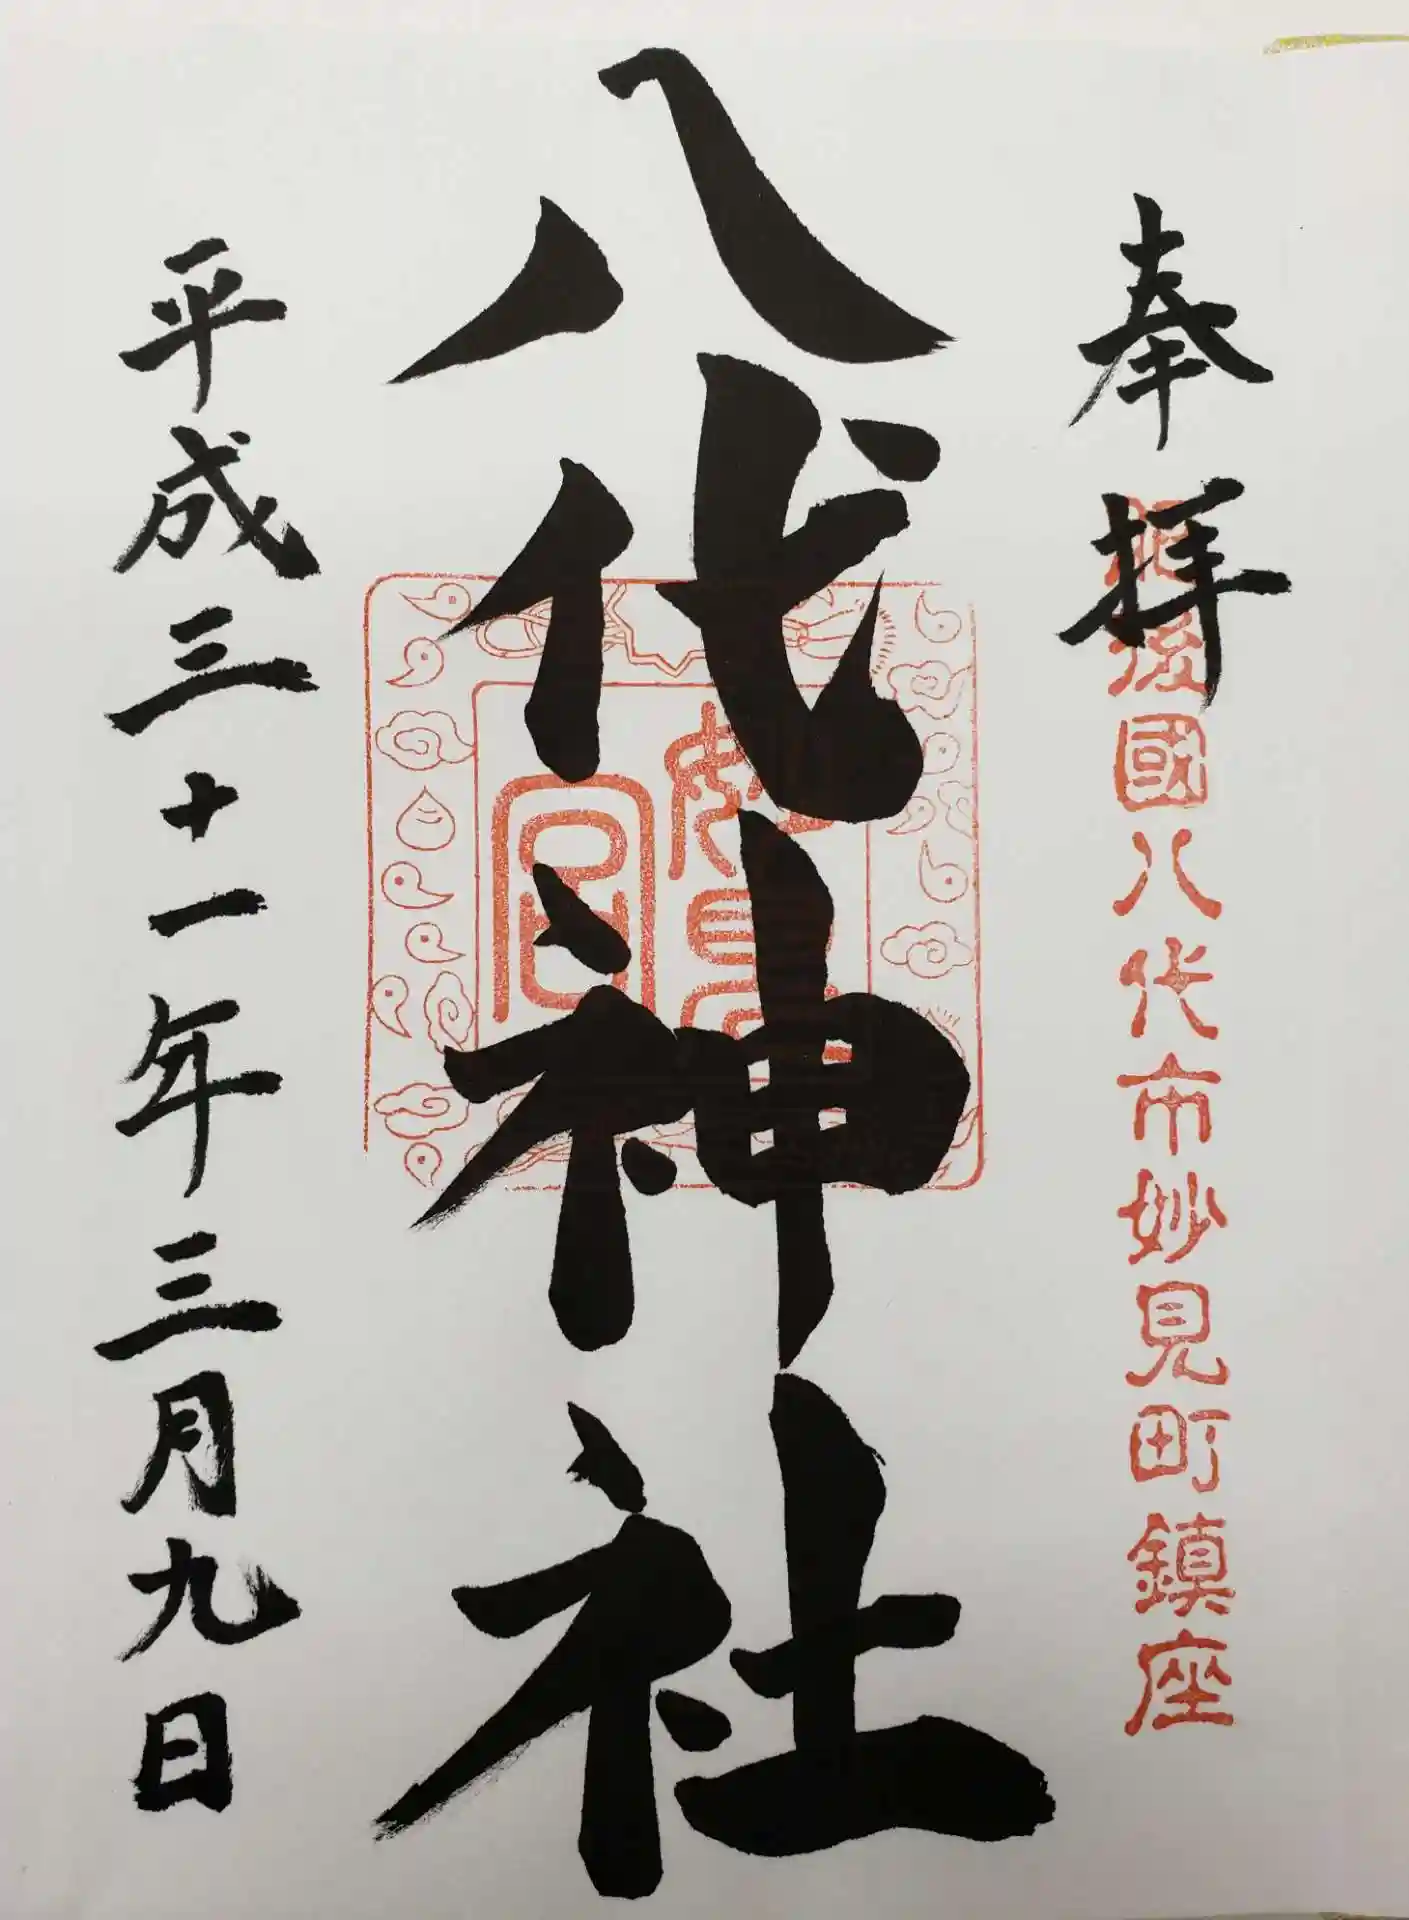 奉拝
肥後國八代市妙見町鎮座
八代神社
妙見宮
平成三十一年三月九日